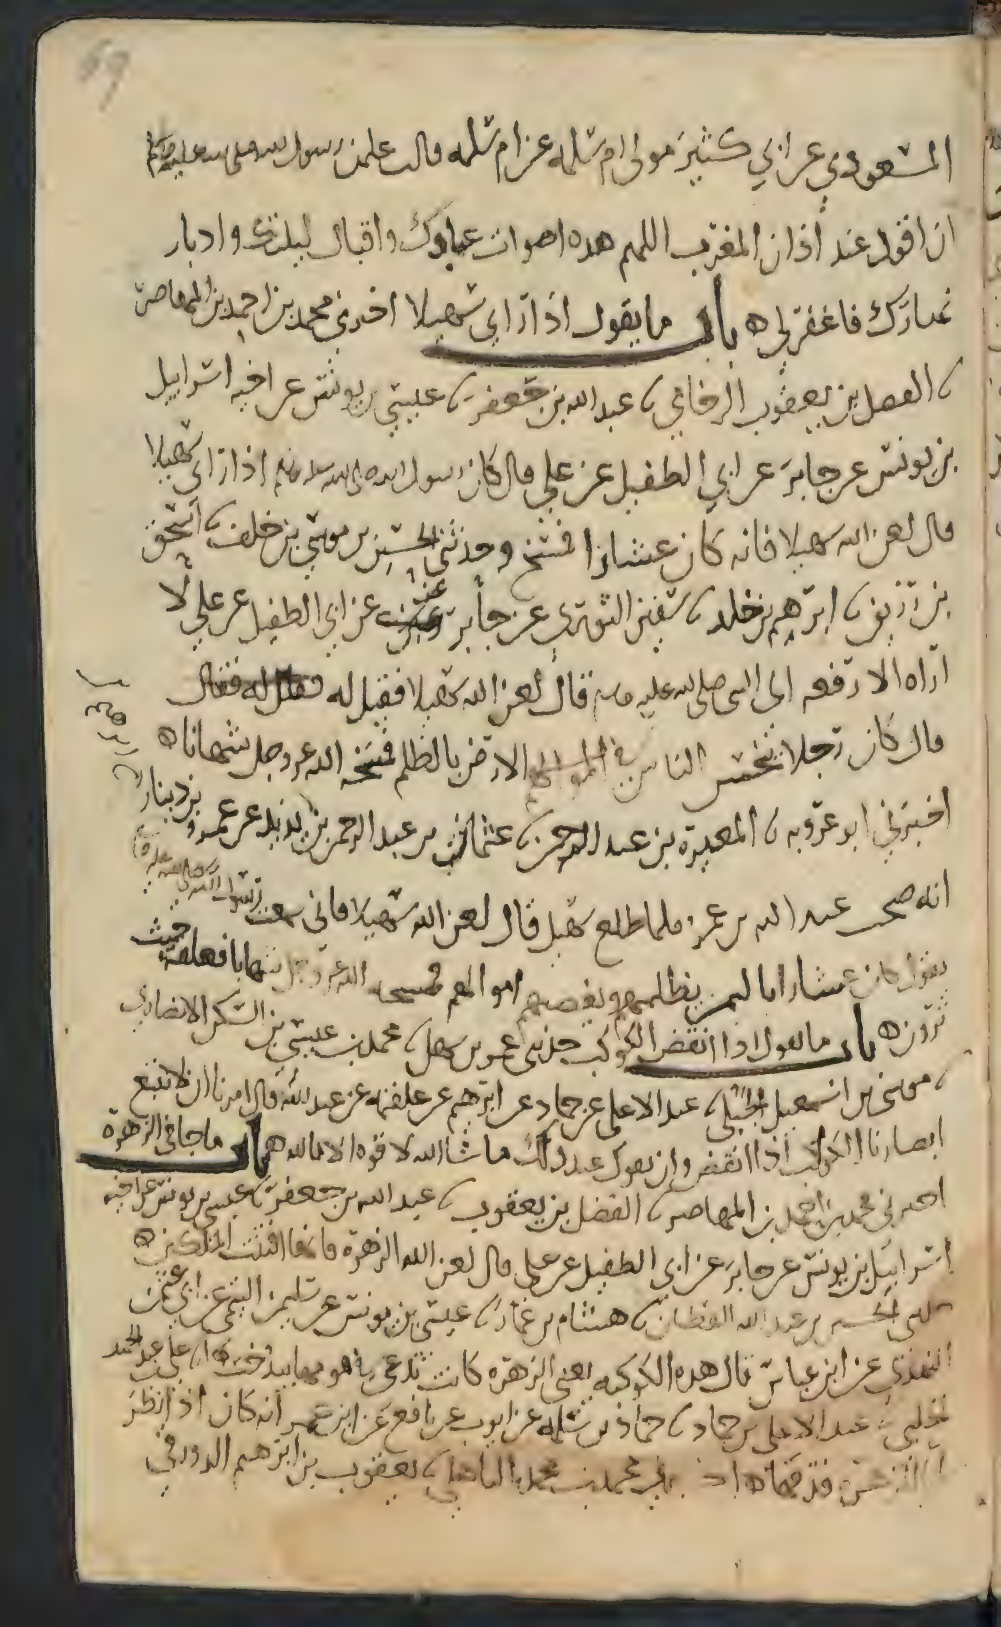 المسعودي عن ابي كثير مولى ام سلمه عن ام سلمه قالت علمني رسول الله صلى الله عليه وسلم
ان اقول عند اذان المغرب اللهم هذه اصوات دعاتك واقبال ليلك وادبار
نهارك فاغفر لي ه باب ما يقول اذا راى سهيلا اخبرني محمد بن احمد بن المهاصر
ثنا الفضل بن يعقوب الرخامي ثنا عبد الله بن جعفر ثنا عيسى بن يونس عن اخيه اسرائيل
بن يونس عن جابر عن ابي الطفيل عن علي قال كان رسول الله صلى الله عليه وسلم اذا راى سهيلا
قال لعن الله سهيلا فانه كان عشارا فمسخ وحدثني الحسين بن موسى بن خلف ثنا اسحق
بن رزيق ثنا ابرهيم بن خلد ثنا سفين الثوري عن جابر عن ابي الطفيل عن علي لا
اراه الا رفعه الى النبي صلى الله عليه وسلم قال لعن الله سهيلا فقيل له فقال
قال كان رجلا يبخس الناس في الارض بالظلم فمسخه الله عز وجل شهابا ه
اخبرني ابو عروبه ثنا المغيرة بن عبد الرحمن ثنا عثمان بن عبد الرحمن عن عمرو بن دينار
انه صحب عبد الله بن عمر فلما طلع سهيل قال لعن الله سهيلا فاني سمعت رسول الله صلى الله عليه وسلم
يقول كان عشارا باليمن يظلمهم ويغصبهم اموالهم فمسخه الله عز وجل شهابا فعلقه حيث
ترون ه باب ما يقول اذا انقض الكوكب حدثني عمر بن سهل ثنا محمد بن عيسى بن السكن الانصاري
ثنا موسى بن اسمعيل الجبلي ثنا عبد الاعلى عن حماد عن ابرهيم عن علقمه عن عبد الله قال امرنا ان لا نتبع
ابصارنا الكوكب اذا انقض وان نقول عند ذلك ما شا الله لا قوة الا بالله ه باب ما جا في الزهرة
اخبرني محمد بن احمد بن المهاصر ثنا الفضل بن يعقوب ثنا عبد الله بن جعفر ثنا عيسى بن يونس عن اخيه
اسرائيل بن يونس عن جابر عن ابي الطفيل عن علي قال لعن الله الزهرة فانها فتنت الملكين ه
الحسين بن عبد الله القطان ثنا هشام بن عمار ثنا عيسى بن يونس عن سليمن التيمي عن ابي عثمن
النهدي عن ابن عباس قال هذه الكوكبه يعني الزهرة كانت تدعى في قومها بيدخت ه
ثنا عبد الاعلى بن حماد ثنا حماد بن سلمه عن ايوب عن نافع عن ابن عمر انه كان اذا نظر
الى الزهرة قذفها ه محمد بن محمد الباهلي ثنا يعقوب بن ابرهيم الدورقي